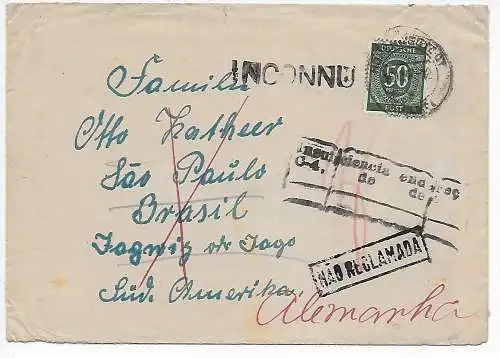 INCONNU
DEUTSCHE
50
POST
Familie
Otto Katheer
São Paulo
Brasil
Jagwig od. Jago
Süd. Amerika.
Insuficiencia endereç
C-4, de de
NÃO RECLAMADA
Alemanha